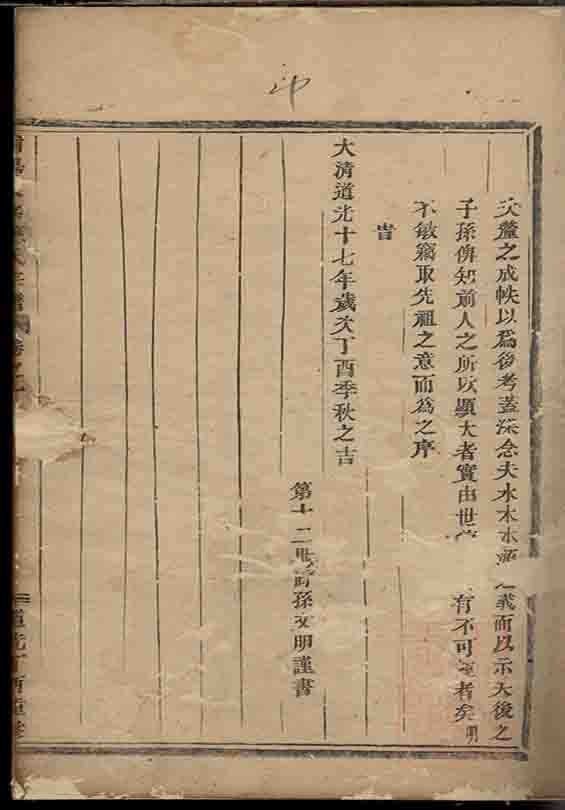 次釐之成帙以爲後考蓋深念夫水木本源之義而以示夫後之
子孫俾知前人之所以顯大者實由世 有不可 者矣明
不敏竊取先祖之意而爲之序
旹
大清道光十七年歲次丁酉季秋之吉
第十二世 孫文明謹書
卷之
道光丁酉重修